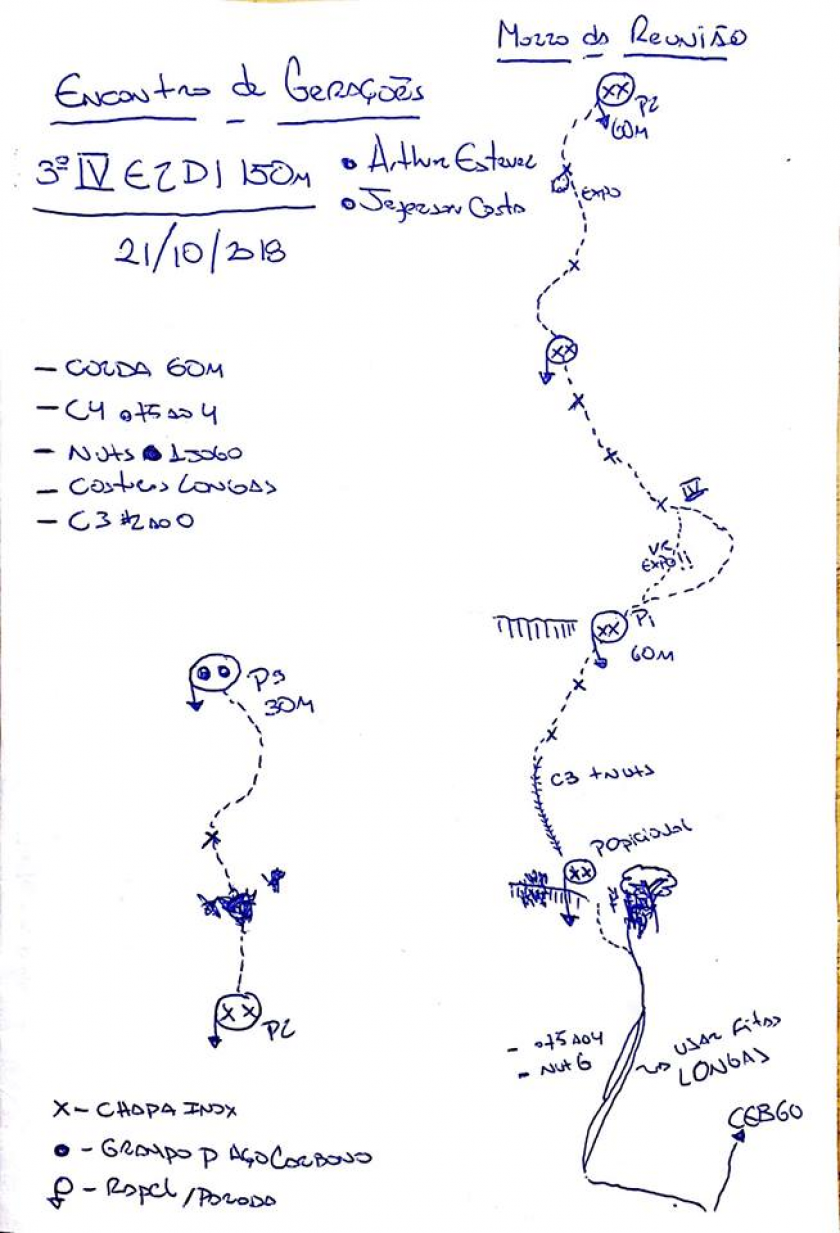 Morro da Reunião
Encontro de Gerações
3º IV E2 D1 150M
• Arthur Estevez
• Jeferson Costa
21/10/2018
P2
60M
EXPO
- CORDA 60M
- C4 .75 ao 4
- Nuts 1 ao 60
- Costuras LONGAS
- C3 #2 ao 0
IV
VR
EXPO!!
P1
60M
C3 + Nuts
P Opicional
P3
30M
P2
- .75 ao 4
- Nut 6
USAR Fitas
LONGAS
CEB60
X - CHAPA INOX
• - GRAMPO P AÇO Carbono
- Rapel/Parada